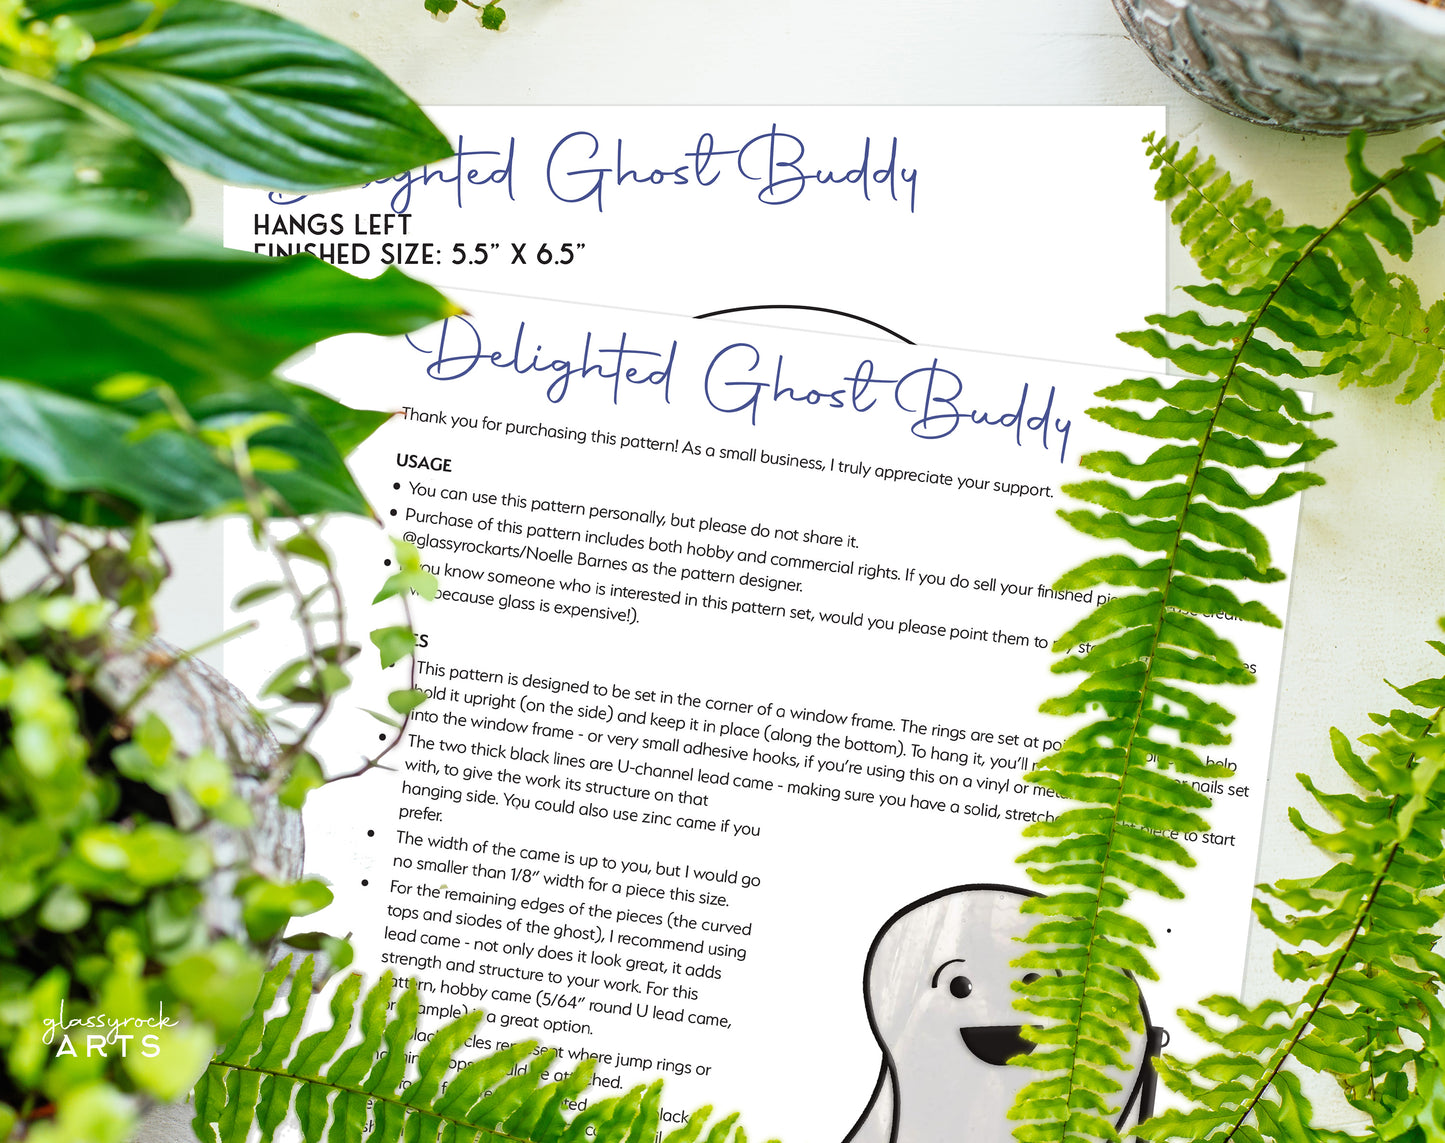 Delighted Ghost Buddy
HANGS LEFT
FINISHED SIZE: 5.5” X 6.5”
Delighted Ghost Buddy
Thank you for purchasing this pattern! As a small business, I truly appreciate your support.
USAGE
• You can use this pattern personally, but please do not share it.
• Purchase of this pattern includes both hobby and commercial rights. If you do sell your finished
@glassyrockarts/Noelle Barnes as the pattern designer.
• you know someone who is interested in this pattern set, would you please point them to
because glass is expensive!).
This pattern is designed to be set in the corner of a window frame. The rings are set at help
hold it upright (on the side) and keep it in place (along the bottom). To hang it, you’ll nails set
into the window frame - or very small adhesive hooks, if you’re using this on a vinyl or
• The two thick black lines are U-channel lead came - making sure you have a solid, piece to start
with, to give the work its structure on that
hanging side. You could also use zinc came if you
prefer.
• The width of the came is up to you, but I would go
no smaller than 1/8” width for a piece this size.
• For the remaining edges of the pieces (the curved
tops and siodes of the ghost), I recommend using
lead came - not only does it look great, it adds
strength and structure to your work. For this
pattern, hobby came (5/64” round U lead came,
for example) is a great option.
represent where jump rings or
attached.
glassyrock
ARTS